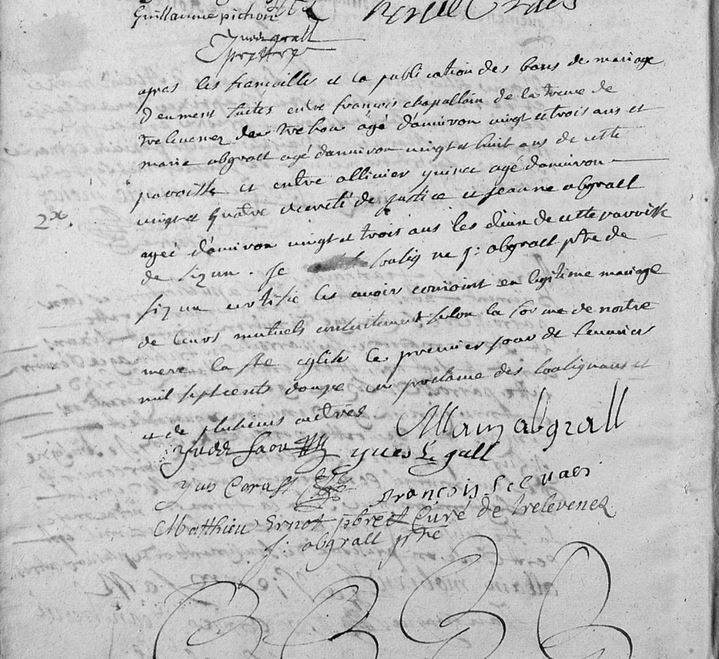 Guillaume pichon
apres les fiancailles et la publication des bans de mariage
deument faites entre françois chapallain de la treve de
treleuenez de trehou agé d'anuiron vingt et trois ans et
marie abgrall agé danuiron vingt et huit ans de cette
paroisse et entre ollivier quinec agé danuiron
vingt et quatre decreté de justice et jeanne abgrall
2x.
ageé d'anuiron vingt et trois ans les deux de cette parroisse
de sizun. Je soubsigné j: abgrall pbre de
sizun certifie les auoir conioint en legitime mariage
de leurs mutuels consentement selon la forme de notre
mere la ste eglise le premier jour de feuurier
mil septcents douze en presence des soubsignans et
et de plusieurs autres
Allain abgrall
yues Le gall
françois
Matthieu Ernot pbre Curé de trelevenez
j. abgrall pbre